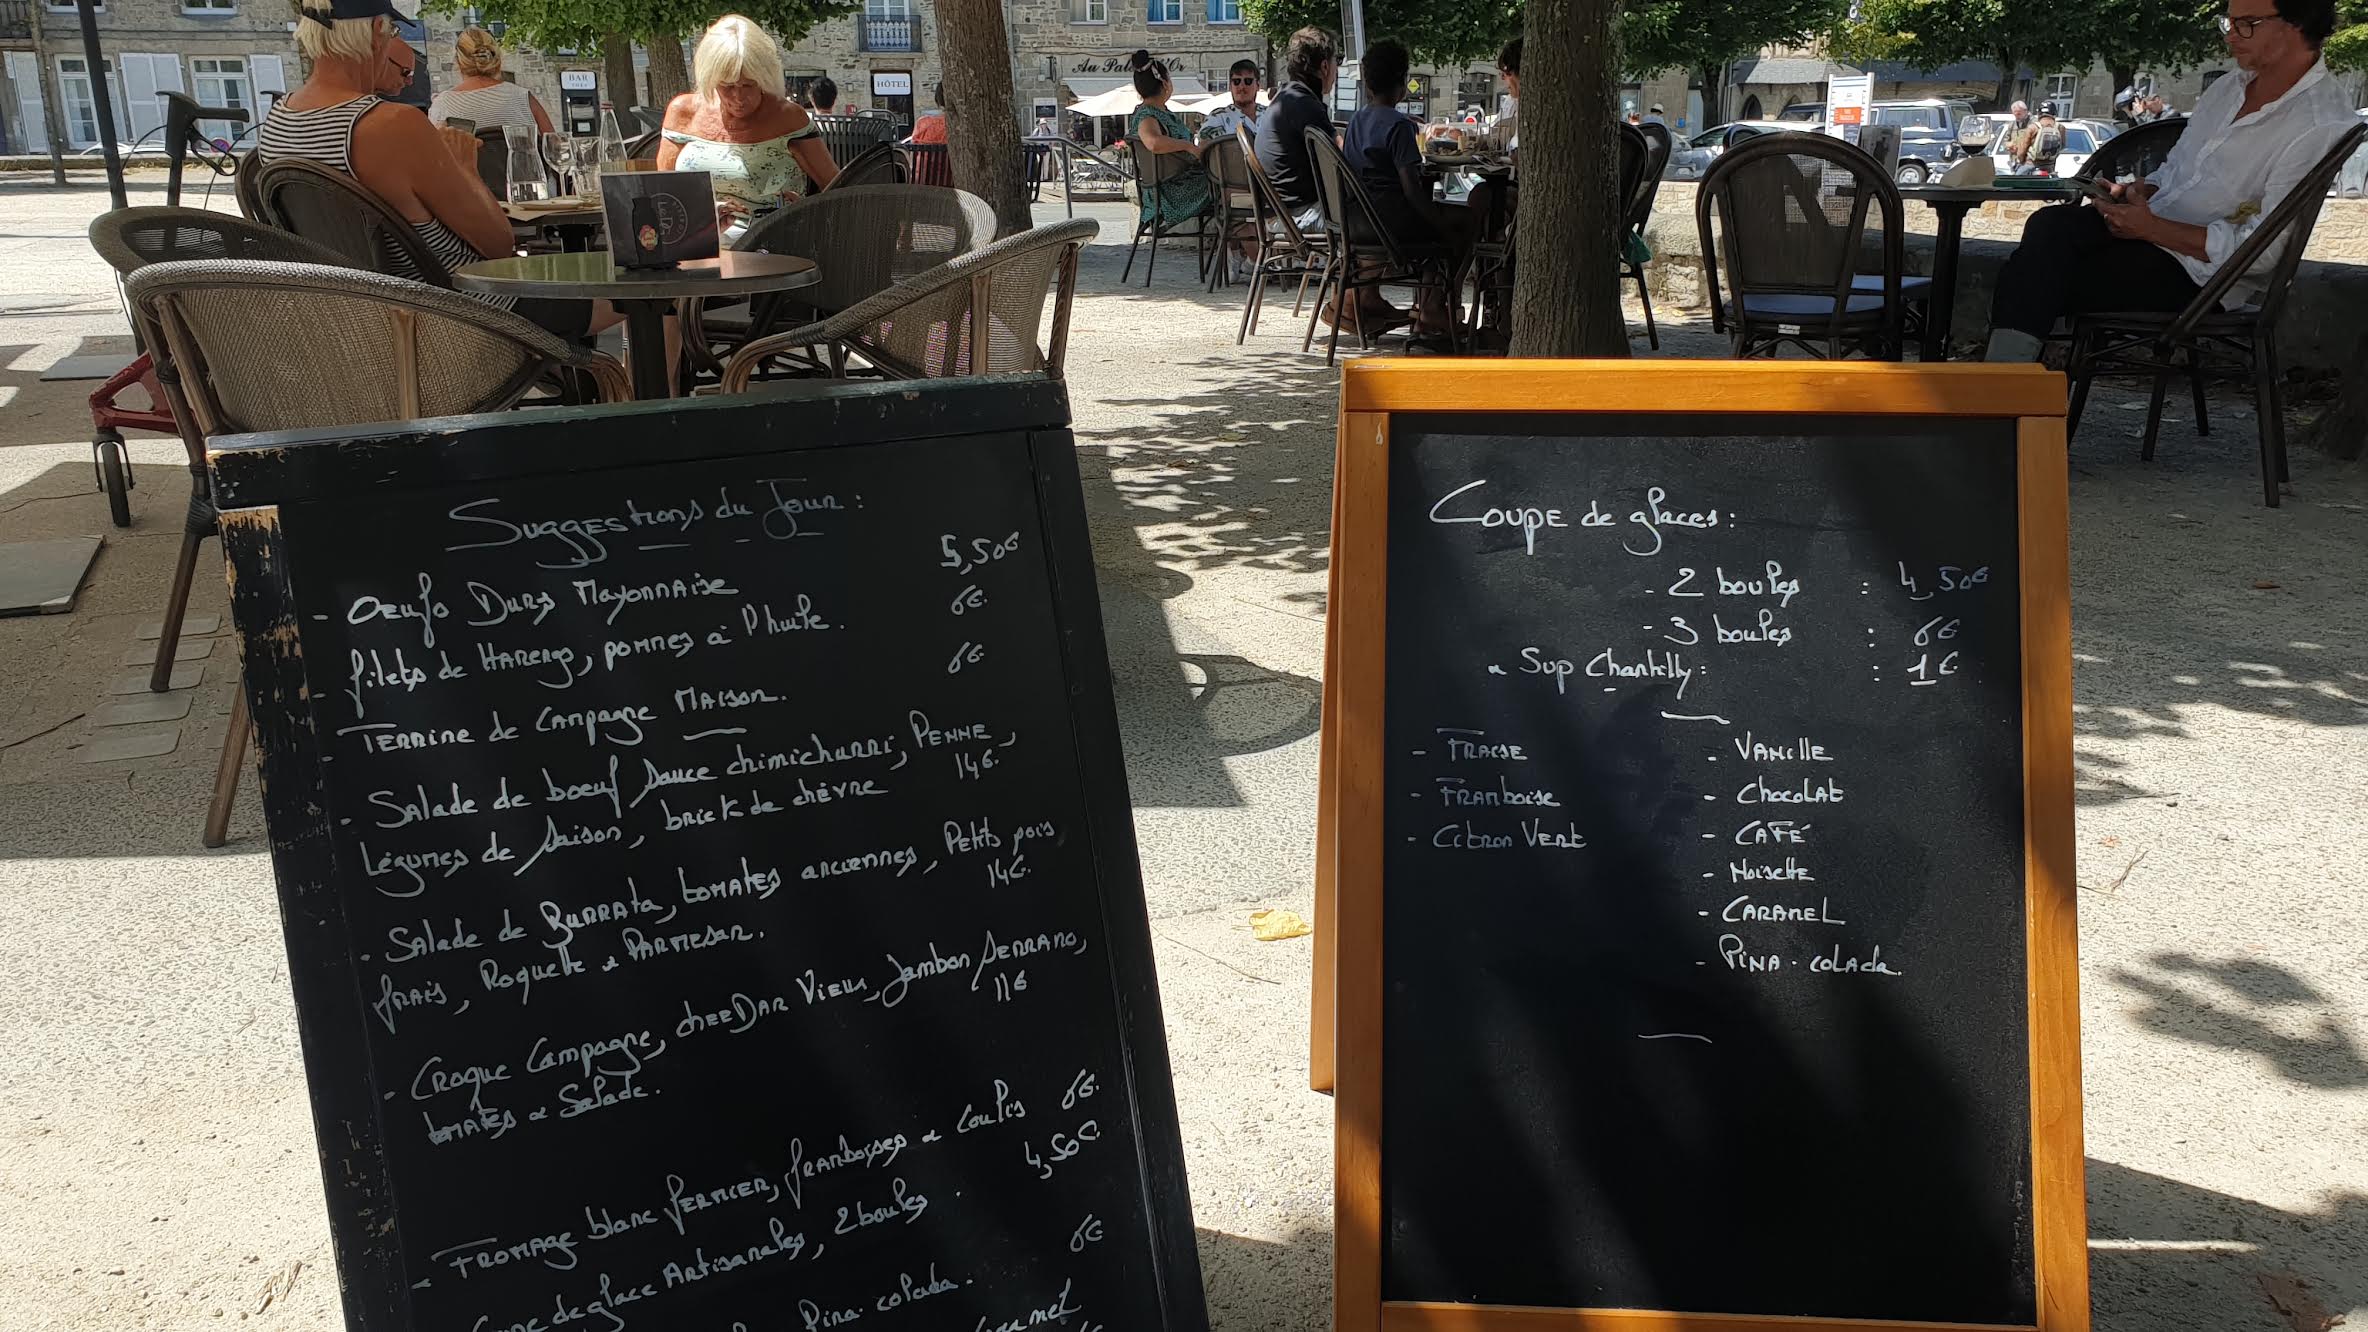 BAR
HÔTEL
Au Palais d'Or
Suggestions du Jour :
- Oeufs Durs Mayonnaise 5,50€
- filets de Harengs, pommes à l'huile. 6€.
- Terrine de Campagne Maison. 6€
- Salade de boeuf, sauce chimichurri, Penne,
Légumes de saison, brick de chèvre 14€.
- Salade de Burrata, tomates anciennes, Petits pois
frais, Roquette & Parmesan. 14€.
- Croque Campagne, cheeDDAR Vieux, Jambon Serrano,
tomates & Salade. 11€
- Fromage blanc fermier, framboises & coulis 6€.
de glace Artisanales, 2 boules. 4,50€
Pina-colada. 6€
Coupe de glaces :
- 2 boules : 4,50€
- 3 boules : 6€
Sup Chantilly : : 1€
- Fraise
- Framboise
- Citron Vert
- Vanille
- Chocolat
- Café
- Noisette
- Caramel
- Pina-colada.